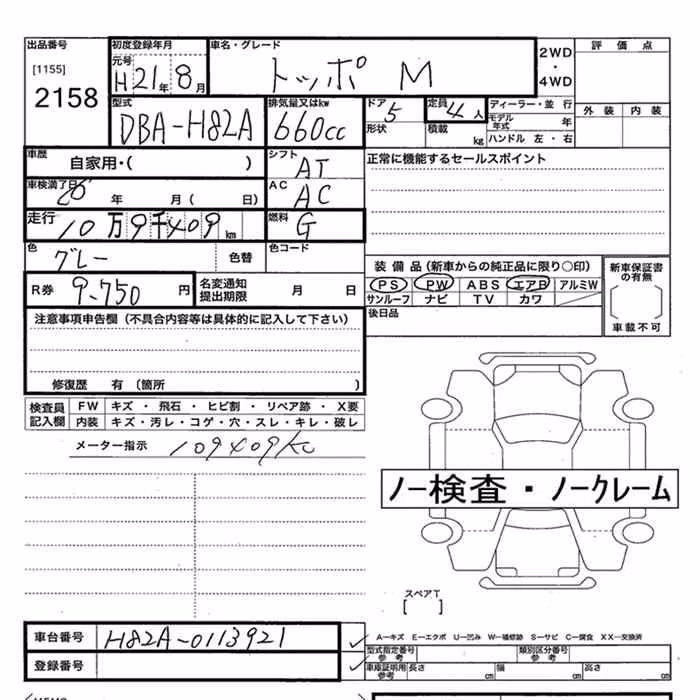 出品番号 初度登録年月 車名・グレード 2WD 評価点
[1155] 元号 ・
2158 H21年8月 トッポ M 4WD
外装 内装
型式 排気量又はkw ドア 定員 ディーラー・並行
DBA-H82A 660cc 5 4人 モデル年式 年
形状 積載 kg ハンドル 左・右
車歴 シフト 正常に機能するセールスポイント
自家用・( ) AT
車検満了日 AC
年 月( 日) AC
走行 燃料
10万9千409km G
色 色替 色コード
グレー
装備品(新車からの純正品に限り○印) 新車保証書の有無
R券 9-750円 名変通知提出期限 月 日
PS PW ABS エアB アルミW
サンルーフ ナビ TV カワ
車載不可
注意事項申告欄(不具合内容等は具体的に記入して下さい) 後日品
修復歴 有(箇所 )
検査員記入欄 FW キズ・飛石・ヒビ割・リペア跡・X要
内装 キズ・汚レ・コゲ・穴・スレ・キレ・破レ
メーター指示 109409K
ノー検査・ノークレーム
スペアT
[ ]
車台番号 H82A-0113921
A-キズ E-エクボ U-凹み W-補修跡 S-サビ C-腐食 XX-交換済
型式指定番号参考 類別区分番号参考
登録番号 車庫証明用参考 長さ cm 幅 cm 高さ cm
MEMO